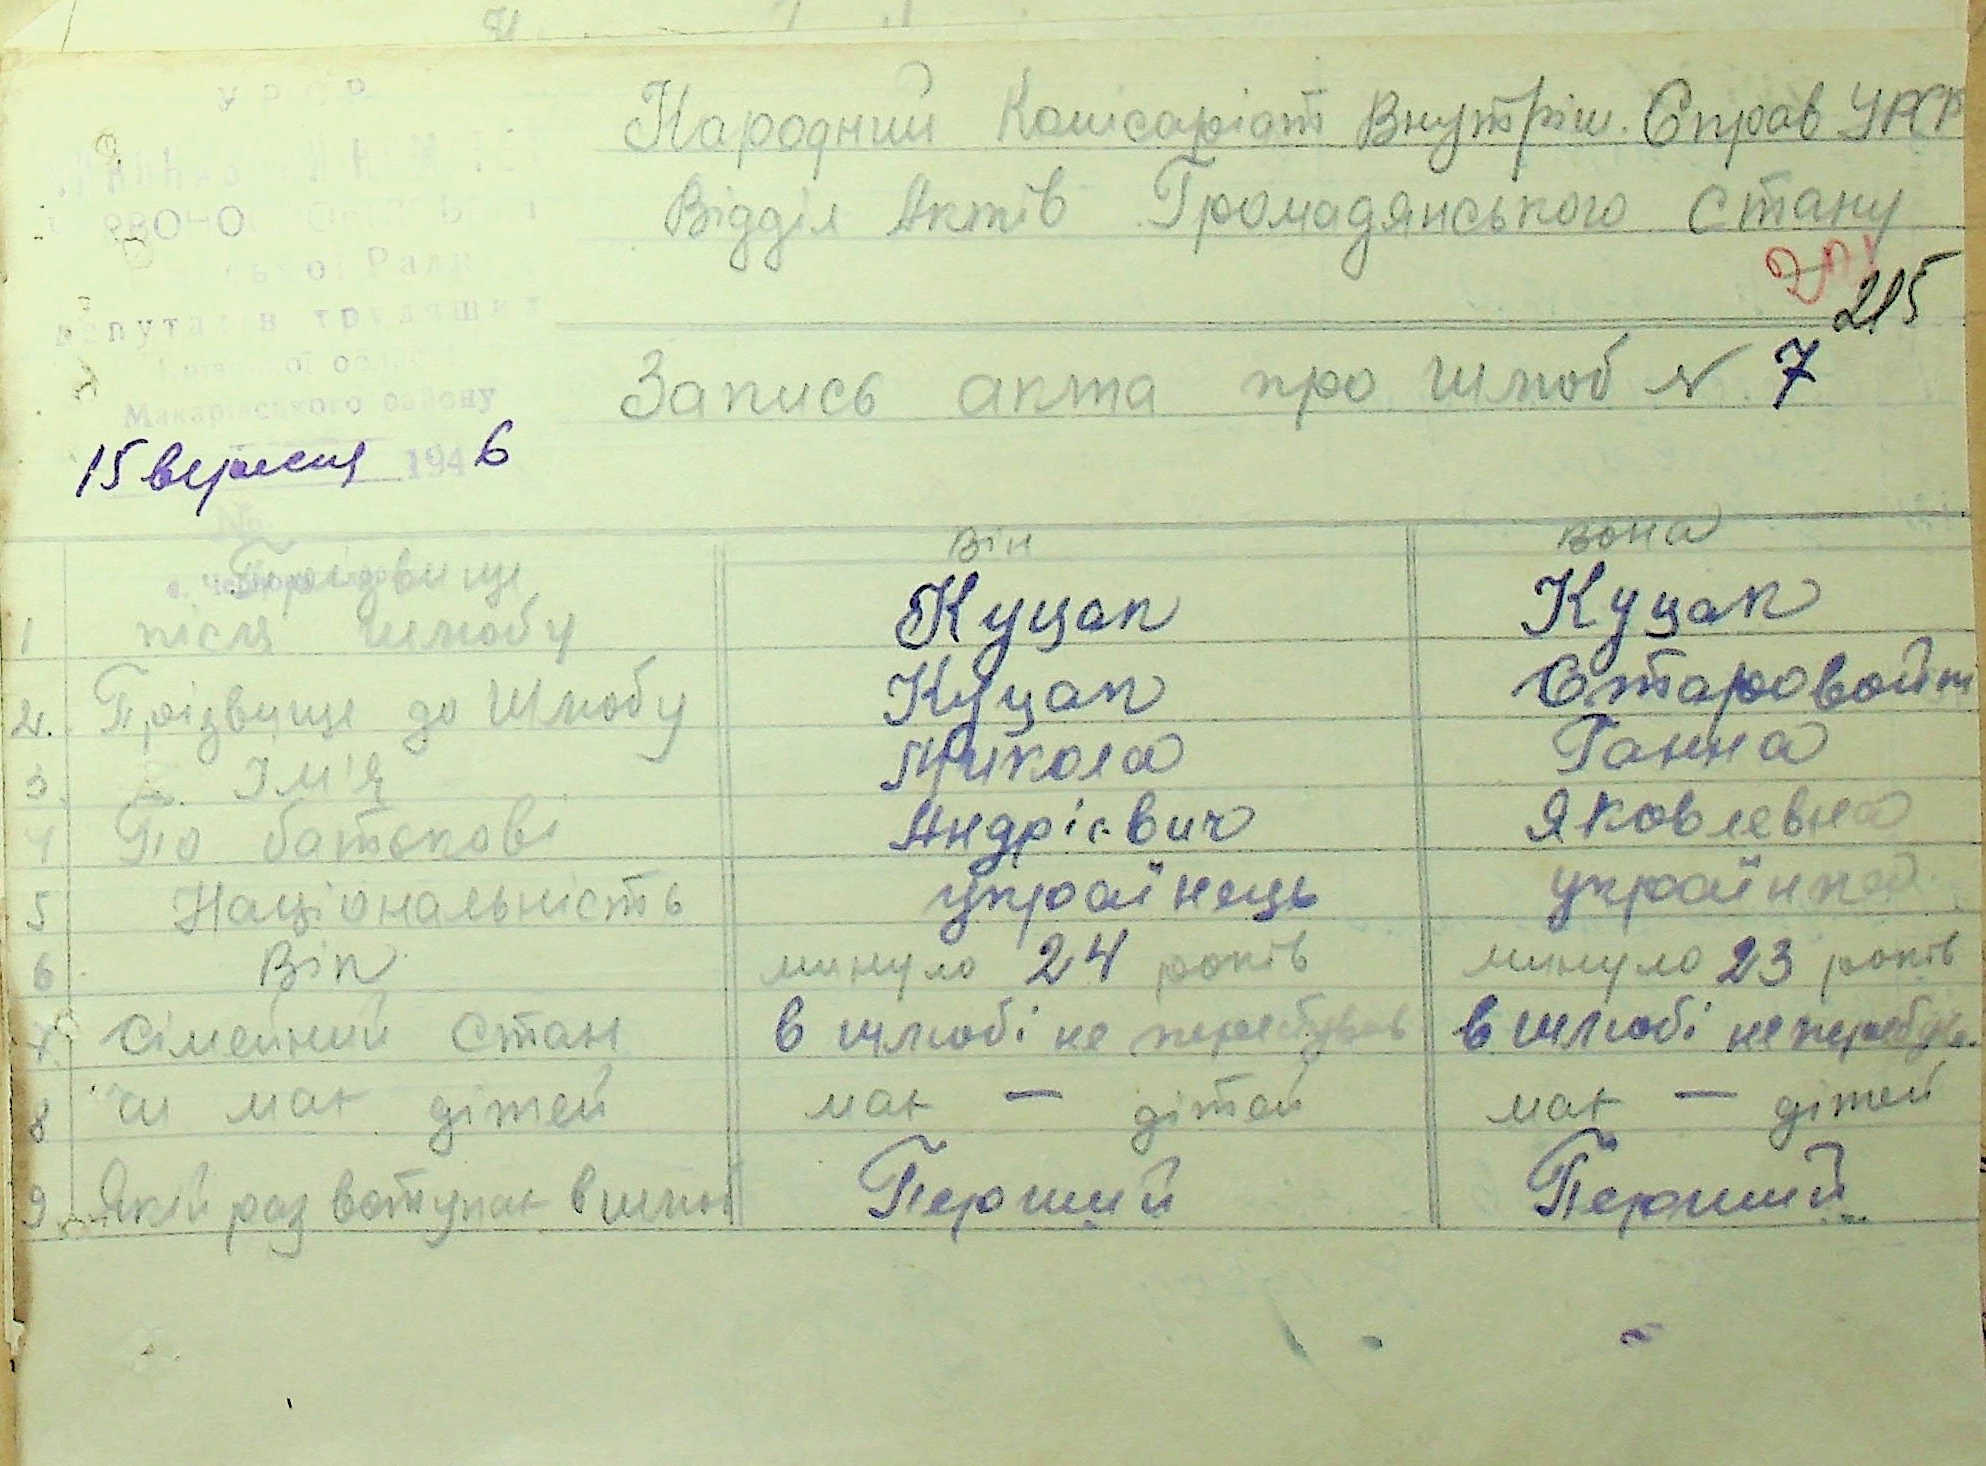 УРСР
Народний Комісаріат Внутріш. Справ УРСР
Відділ Актів Громадянського Стану
ької Ради
депутатів трудящих
215
Запис акта про шлюб № 7
Макарівського району
15 вересня 1946
№
Він Вона
Прізвище
1 після шлюбу Куцак Куцак
2. Прізвище до шлюбу Куцак Старовойт
3. Ім'я Микола Ганна
4 По батькові Андрієвич Яковлевна
5 Національність українець українка
6 Вік минуло 24 років минуло 23 років
7. Сімейний стан в шлюбі не перебував в шлюбі не перебув.
8 Чи має дітей має — дітей має — дітей
9 Якій раз вступає в шлюб Перший Перший